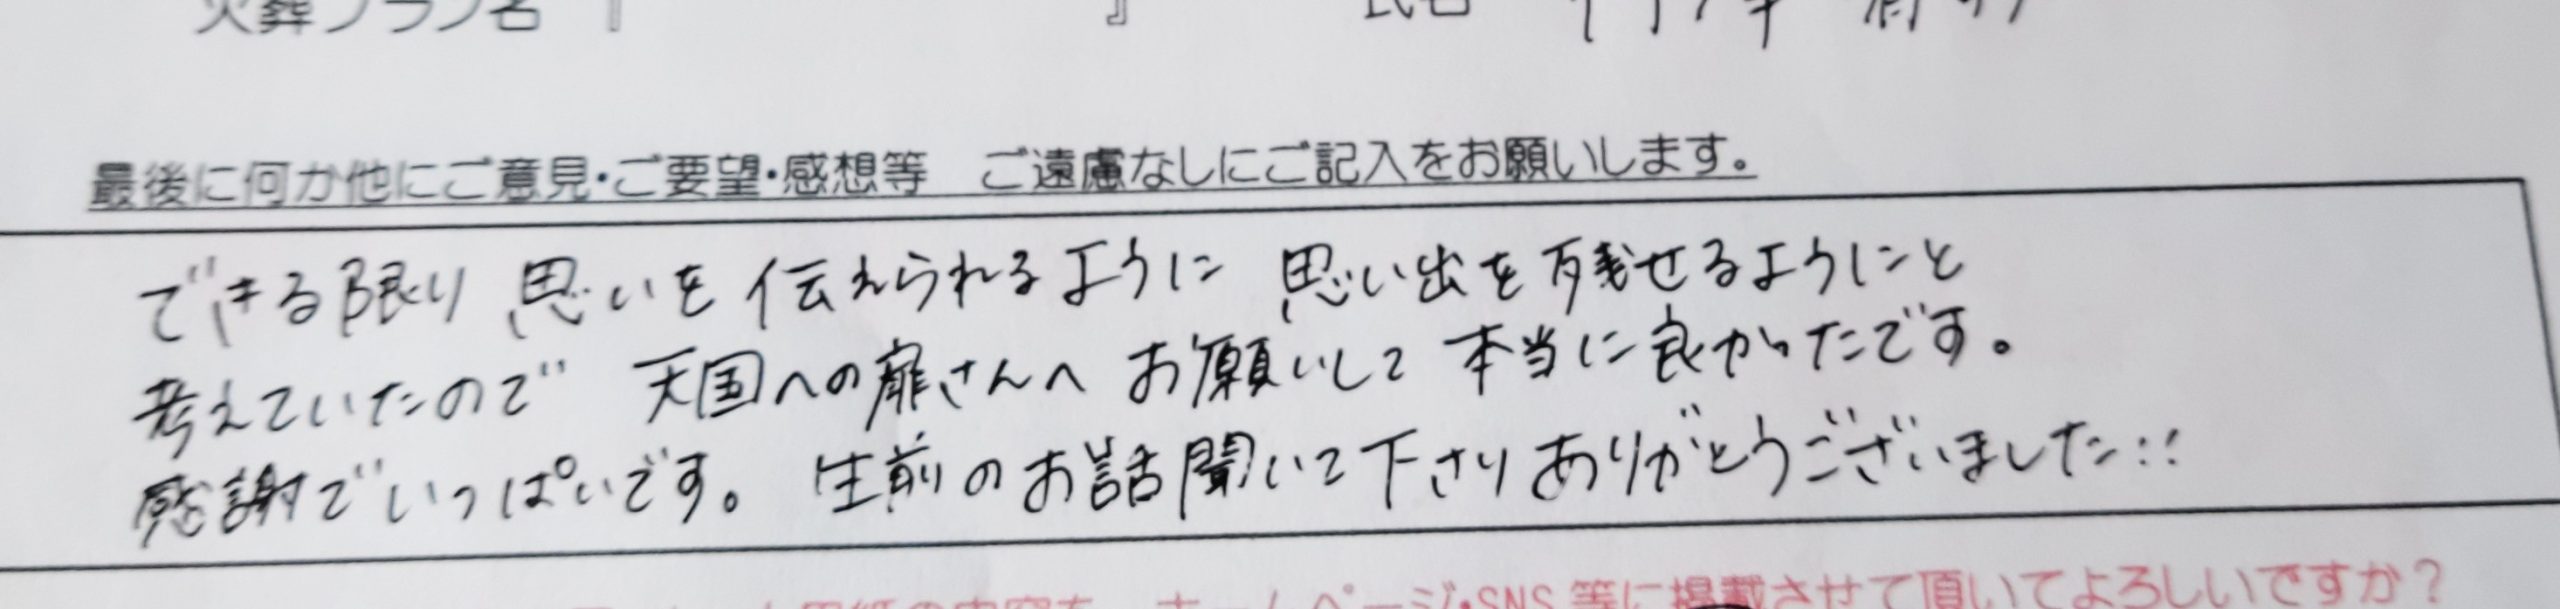 火葬プラン名『　　　　　　』　氏名
最後に何か他にご意見・ご要望・感想等　ご遠慮なしにご記入をお願いします。
できる限り 思いを 伝えられるように 思い出を 残せるようにと
考えていたので 天国への扉さんへ お願いして 本当に良かったです。
感謝でいっぱいです。 生前のお話聞いて下さりありがとうございました!!
ホームページ・SNS等に掲載させて頂いてよろしいですか？